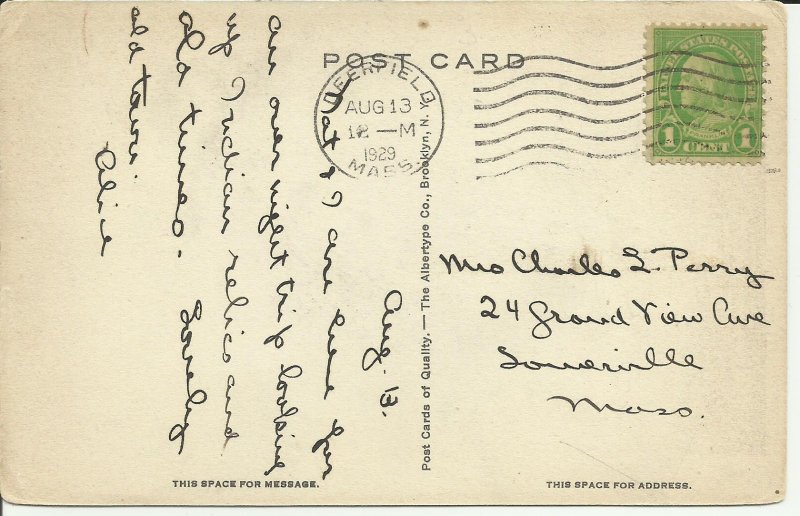 POST CARD
DEERFIELD
AUG 13
12 — M
1929
MASS.
UNITED STATES POSTAGE
1 CENT 1
Aug. 13.
Nat & I are here for
an over night trip looking
up Indian relics and
old times. Lovely
old town.
Alice
Post Cards of Quality. — The Albertype Co., Brooklyn, N. Y.
Mrs Charles L. Perry
24 Grand View Ave
Somerville
Mass.
THIS SPACE FOR MESSAGE.
THIS SPACE FOR ADDRESS.